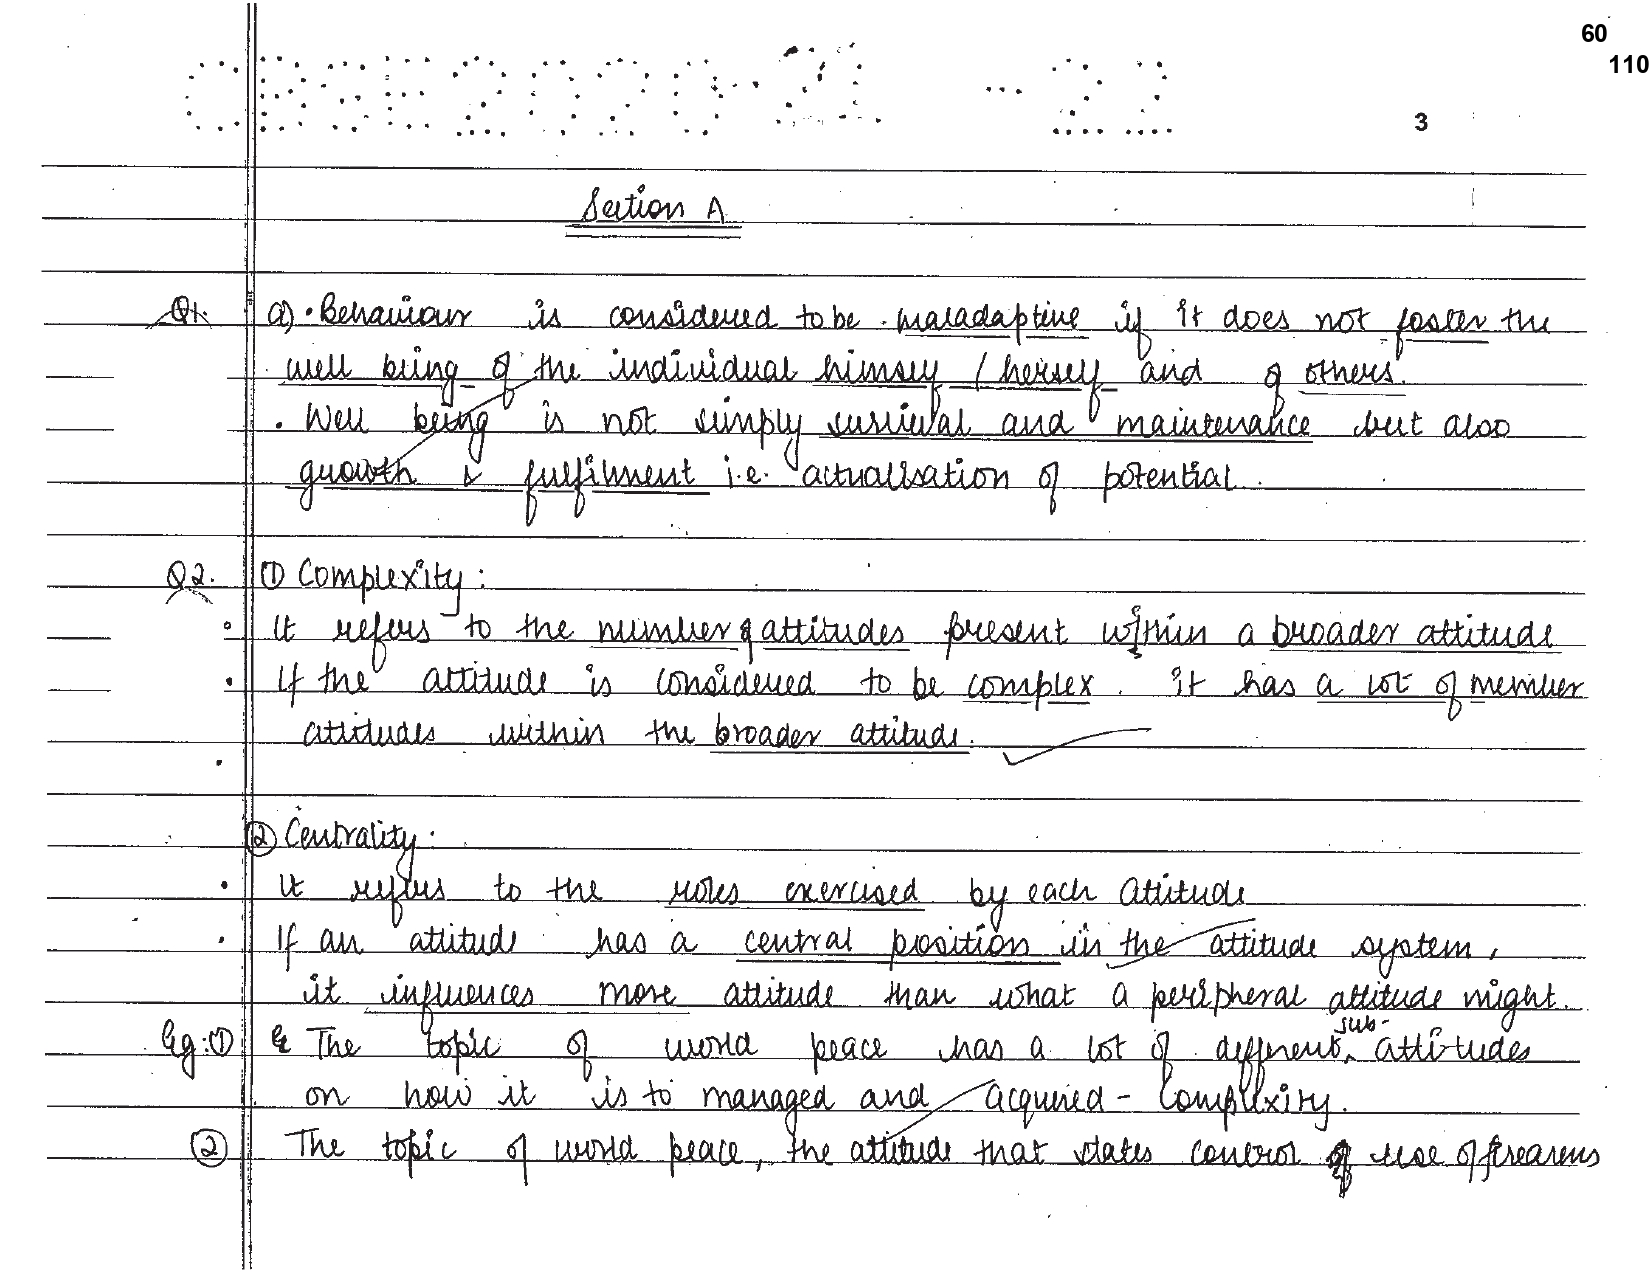 60
110
CBSE2020-21 -22
3
Section A
Q1. a) • Behaviour is considered to be maladaptive if it does not foster the
well being of the individual himself / herself and of others.
• Well being is not simply survival and maintenance but also
growth & fulfilment i.e. actualisation of potential.
Q2. ① Complexity:
• It refers to the number of attitudes present within a broader attitude
• If the attitude is considered to be complex. it has a lot of member
attitudes within the broader attitude.
② Centrality:
• It refers to the roles exercised by each attitude
• If an attitude has a central position in the attitude system,
it influences more attitude than what a peripheral attitude might.
sub-
Eg: ① The topic of world peace has a lot of different attitudes
on how it is to managed and acquired - Complexity.
② The topic of world peace, the attitude that states control of use of firearms